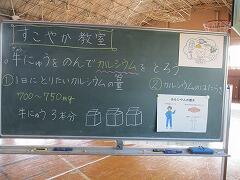 すこやか教室
牛にゅうをのんでカルシウムをとろう
①1日にとりたいカルシウムの量
700〜750mg
牛にゅう 3本分
②カルシウムのはたらき